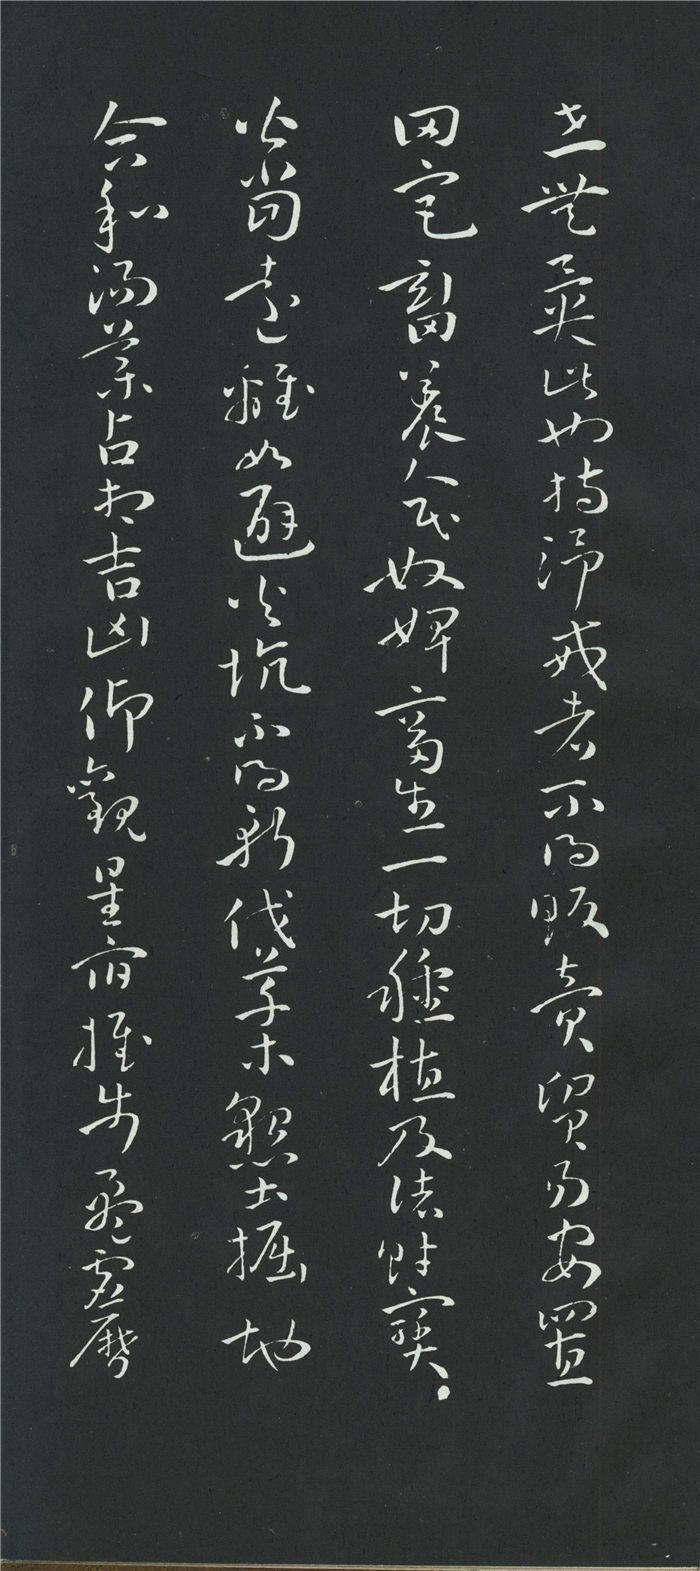 在世無異此也持淨戒者不得販賣貿易安置
田宅畜養人民奴婢畜生一切種植及諸財寶
皆當遠離如避火坑不得斬伐草木墾土掘地
合和湯藥占相吉凶仰觀星宿推步盈虛曆